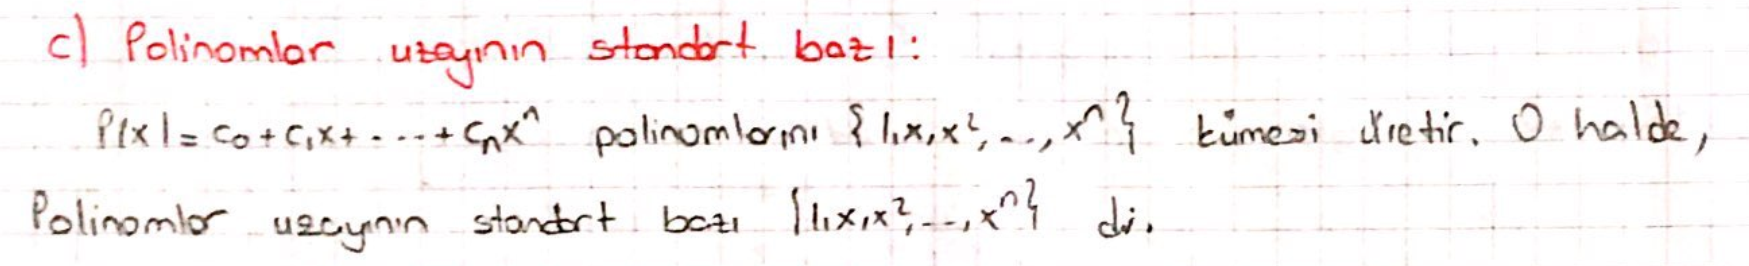 c) Polinomlar uzayının standart bazı:
P(x)=c₀+c₁x+....+cₙxⁿ polinomlarını {1,x,x²,...,xⁿ} kümesi üretir. O halde,
Polinomlar uzayının standart bazı {1,x,x²,...,xⁿ} dir.